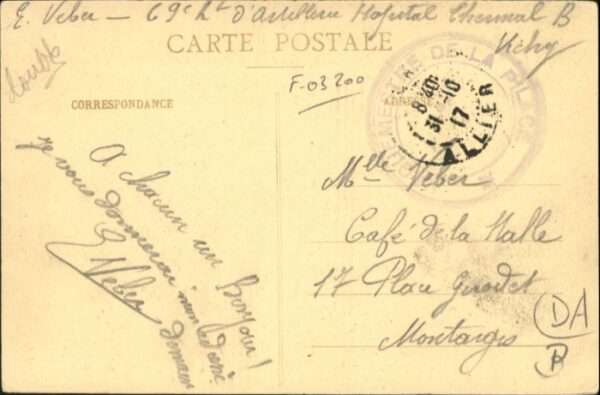 E. Veber — 69e Rt d'Artillerie Hopital Thermal B
Vichy
CARTE POSTALE
double
F-03200
CORRESPONDANCE
DE LA PLACE
8 40
31 -10
17
ALLIER
A chacun un Bonjour!
je vous donnerai mon
demain
E Veber
Melle Veber
Café de la Halle
17 Place Girodet
Montargis
DA
B